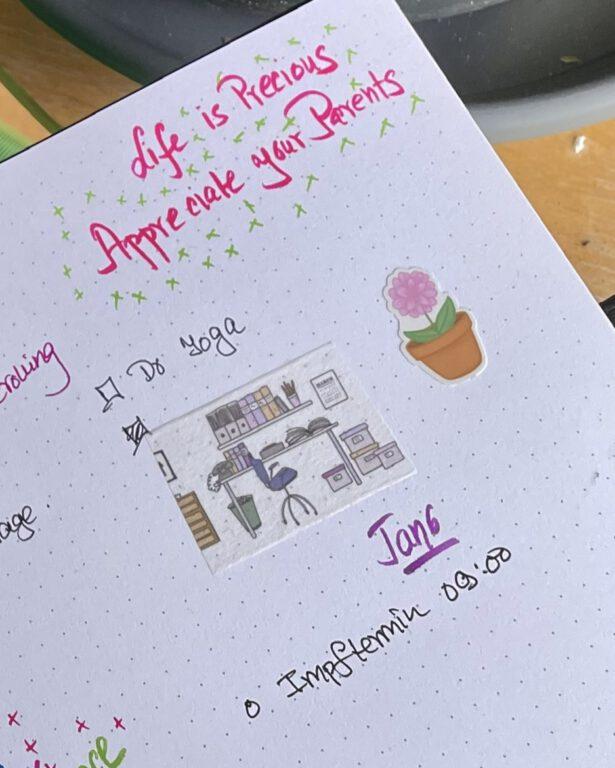 Life is Precious
Appreciate your Parents
Do Yoga
Jan6
Impftermin 09:00